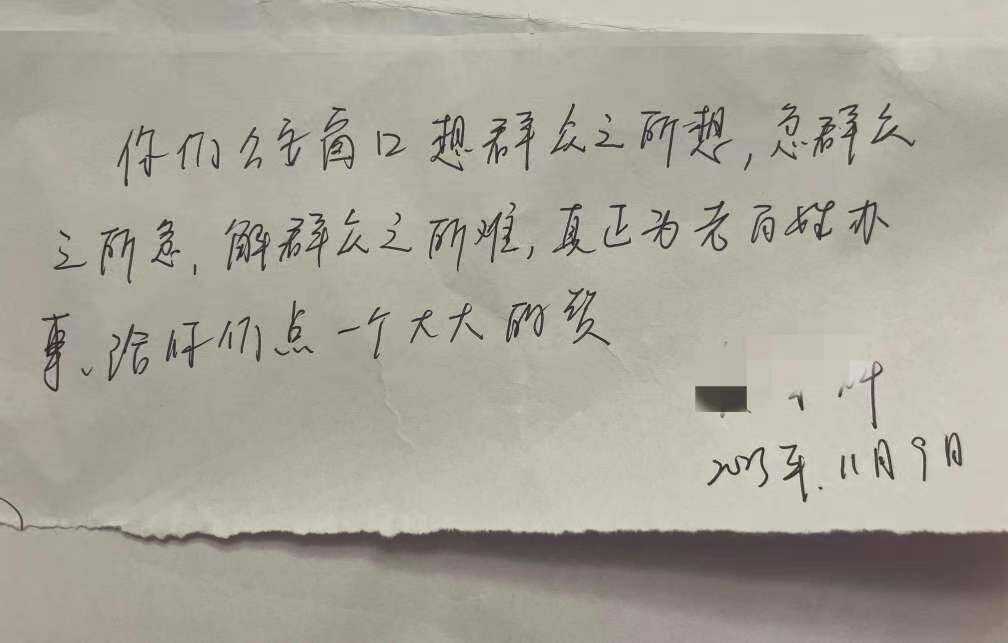 你们公安窗口想群众之所想，急群众
之所急，解群众之所难，真正为老百姓办
事、给你们点一个大大的赞
2023年.11月9日